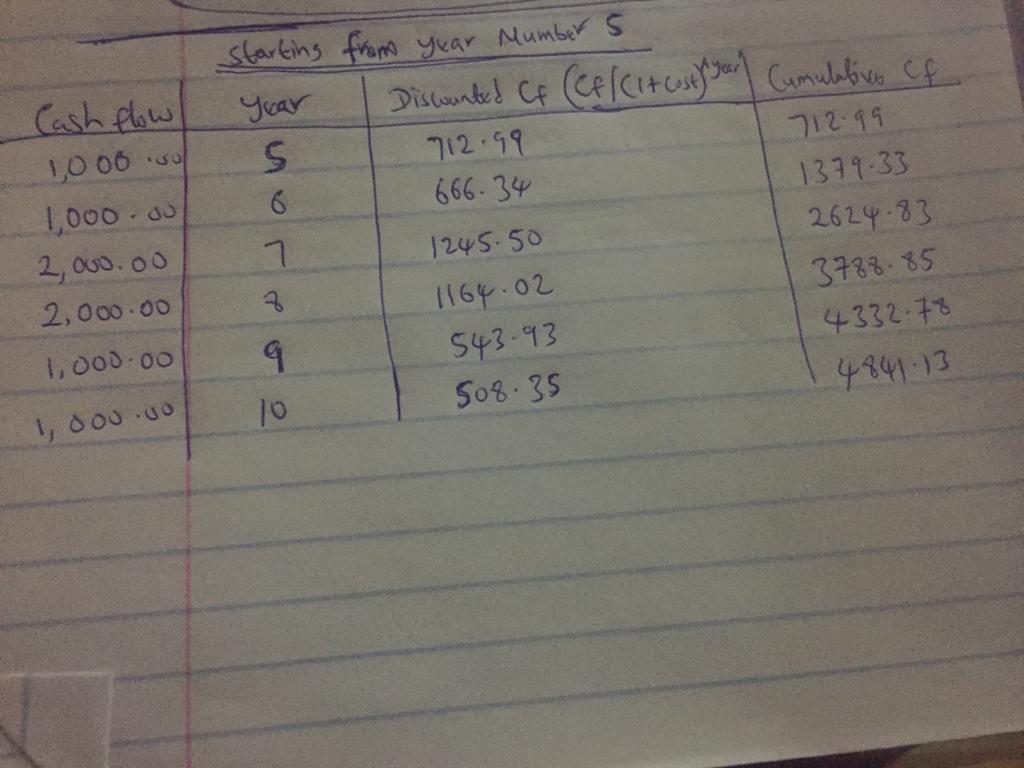 Starting from year Number 5
Cash flow year Discounted Cf (Cf/(1+Cost)^year) Cumulative Cf
1,000.00 5 712.99 712.99
1,000.00 6 666.34 1379.33
2,000.00 7 1245.50 2624.83
2,000.00 8 1164.02 3788.85
1,000.00 9 543.93 4332.78
1,000.00 10 508.35 4841.13